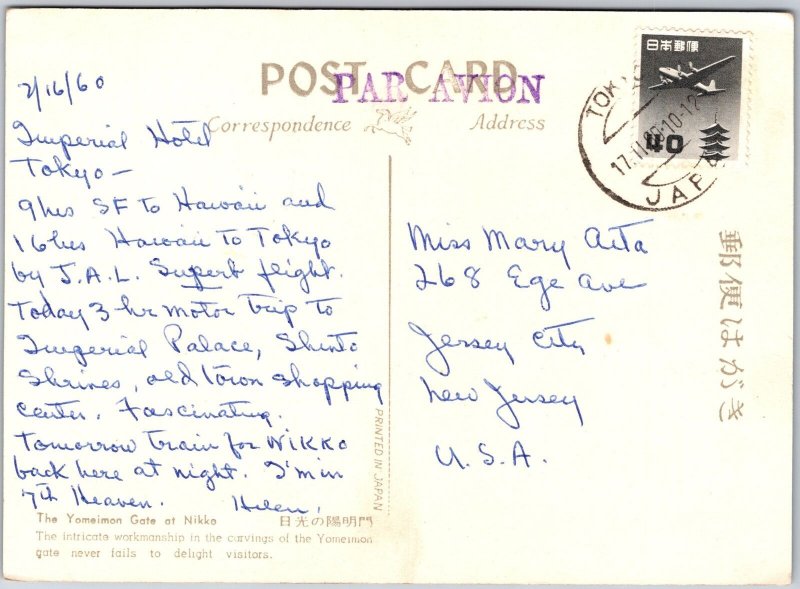 POST CARD
PAR AVION
Correspondence
Address
2/16/60
Imperial Hotel
Tokyo —
9hrs SF To Hawaii and
16hrs Hawaii To Tokyo
by J.A.L. Superb flight.
Today 3 hr motor trip to
Imperial Palace, Shinto
Shrines, old town shopping
center. Fascinating.
Tomorrow train for Nikko
back here at night. I'm in
7th Heaven. Helen.
The Yomeimon Gate at Nikko 日光の陽明門
The intricate workmanship in the carvings of the Yomeimon
gate never fails to delight visitors.
PRINTED IN JAPAN
日本郵便
40
JAPAN
Miss Mary Aita
268 Ege Ave
Jersey City
New Jersey
U.S.A.
郵便はがき